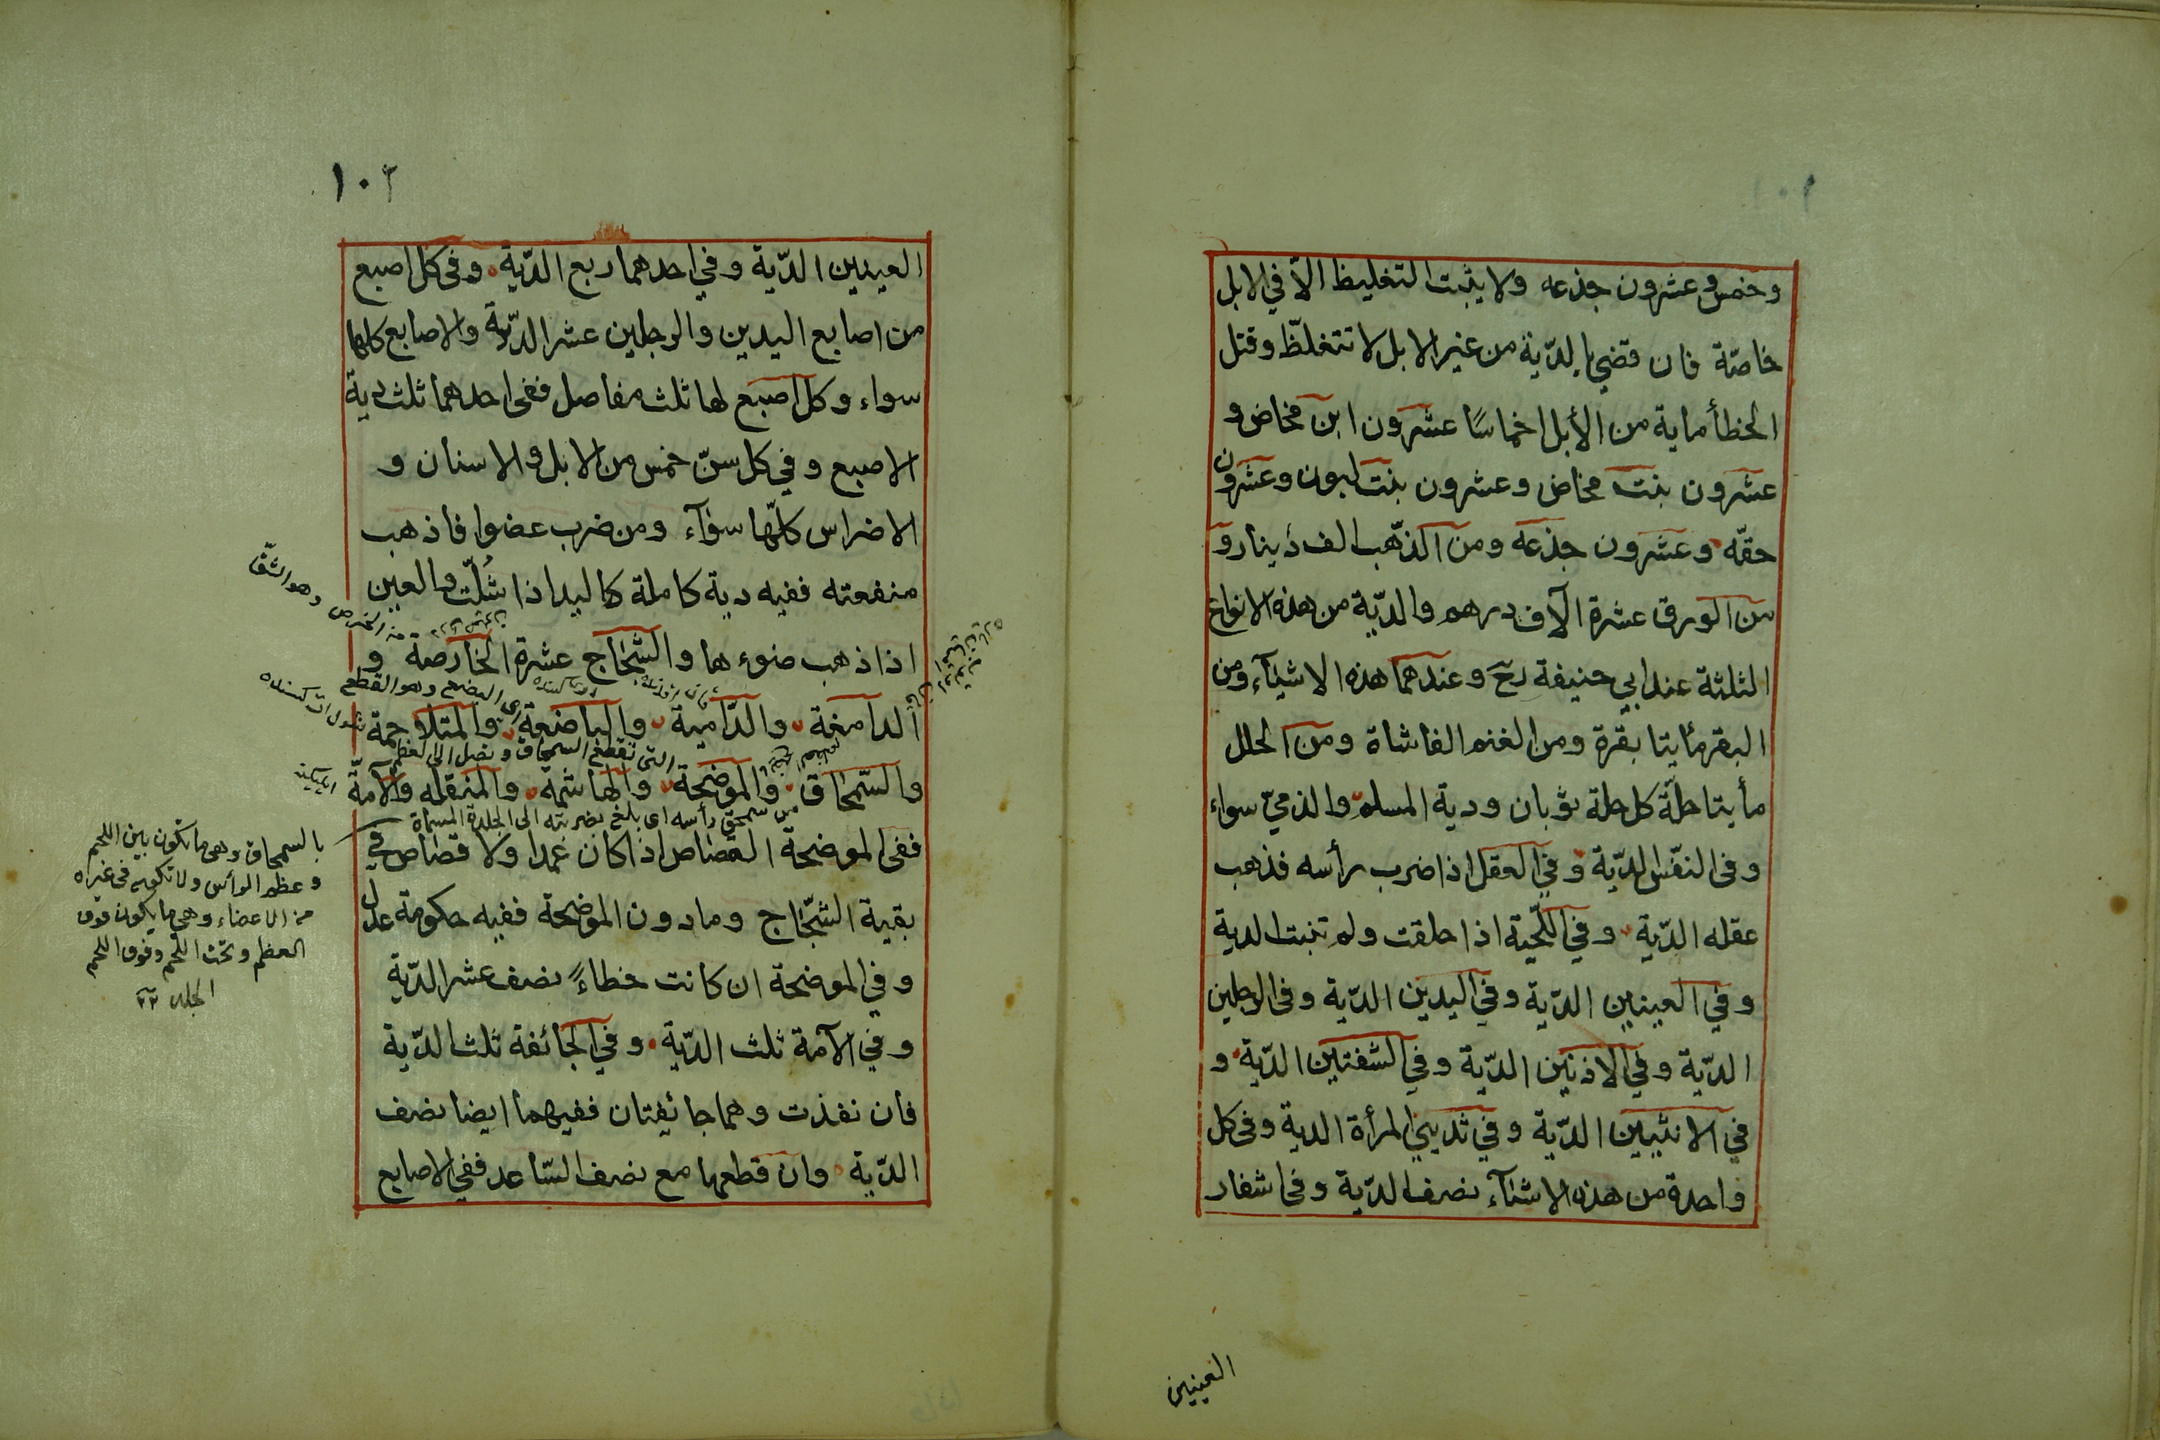 وخمس وعشرون جذعه ولا يثبت التغليظ الّا في الابل
خاصّة فان قضي بالدّية من غير الابل لا تتغلّظ وقتل
الخطأ ماية من الأبل اخماسًا عشرون ابن مخاض و
عشرون بنت مخاض وعشرون بنت لبون وعشرون
حقّه وعشرون جذعه ومن الذّهب الف دينار و
من الورق عشرة آلاف درهم والدّية من هذه الانواع
الثلثة عند ابي حنيفة رح وعندهما هذه الاشيآء ومن
البقر مأيتا بقرة ومن الغنم الفا شاة ومن الحلل
مأيتا حلّة كل حلة ثوبان ودية المسلم والذميّ سواء
وفى النفس الدّية وفي العقل اذا ضرب رأسه فذهب
عقله الدّية وفي اللّحية اذا حلقت ولم تنبت الدية
وفي العينين الدّية وفي اليدين الدّية وفى الرجلين
الدّية وفي الاذنين الدّية وفي الشفتين الدّية و
في الانثيين الدّية وفي ثديي المرأة الدية وفى كل
واحدة من هذه الاشيآء نصف الدّية وفى اشفار
العينين
١٠٢
العينين الدّية وفي احدهما ربع الدّية وفى كل اصبع
من اصابع اليدين والرجلين عشر الدّية والاصابع كلها
سواء وكل اصبع لها ثلث مفاصل ففى احدهما ثلث دية
الاصبع وفي كل سنّ خمس من الابل والاسنان و
الاضراس كلّها سوآء ومن ضرب عضوا فاذهب
منفعته ففيه دية كاملة كاليد اذا شُلّت والعين
اذا ذهب ضوءها والشّجاج عشرة الخارصة و
الدامغة والدّامية والباضعة والمتلاحمة
والسّمحاق والموضحة والهاشمة والمنقله والآمّة
ففى الموضحة القصاص اذا كان عمدا ولا قصاص في
بقية الشّجّاج وما دون الموضحة ففيه حكومة عدل
وفي الموضحة ان كانت خطاءً نصف عشر الدّية
وفي الآمة ثلث الدّية وفي الجائفة ثلث الدّية
فان نفذت وهما جائفتان ففيهما ايضا نصف
الدّية وان قطعها مع نصف السّاعد ففي الاصابع
من الخرص وهو الشّق
من البضع وهو القطع
التى تقطع السمحاق وتصل الى العظم
من سمحق رأسه اى بلغ بضربته الى الجلدة المسماة
بالسمحاق وهى ما تكون بين اللحم
وعظم الرأس ولا تكون في غيراه
من الاعضاء وهي ما يكون فوق
العظم وتحت اللحم وفوق اللحم
الجلد